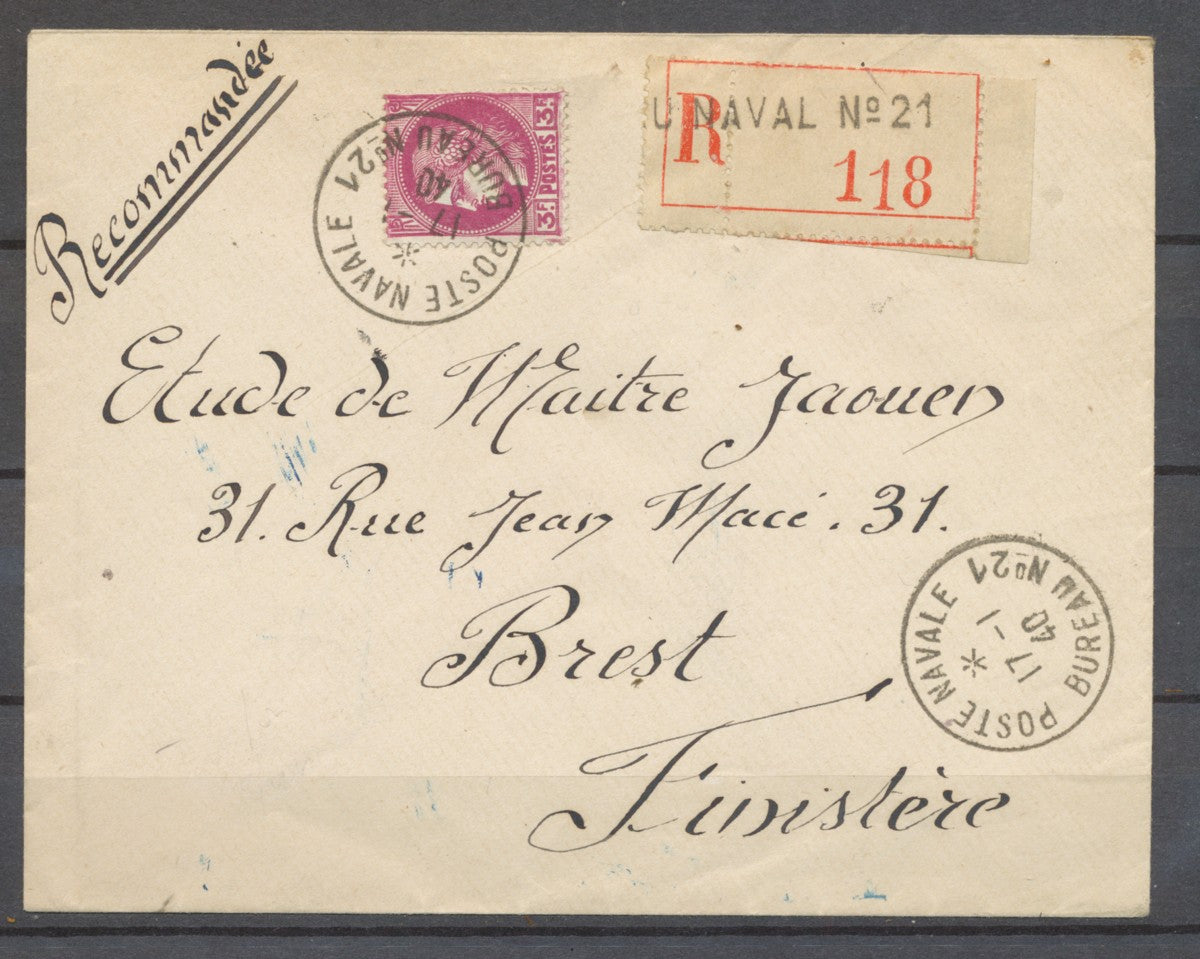 Recommandée
3F POSTES 3F
POSTE NAVALE BUREAU No 21
17
40
*
U NAVAL No 21
R
118
Etude de Maitre Jaouen
31. Rue Jean Macé. 31.
Brest
Finistère
POSTE NAVALE BUREAU No 21
17 - 1
40
*